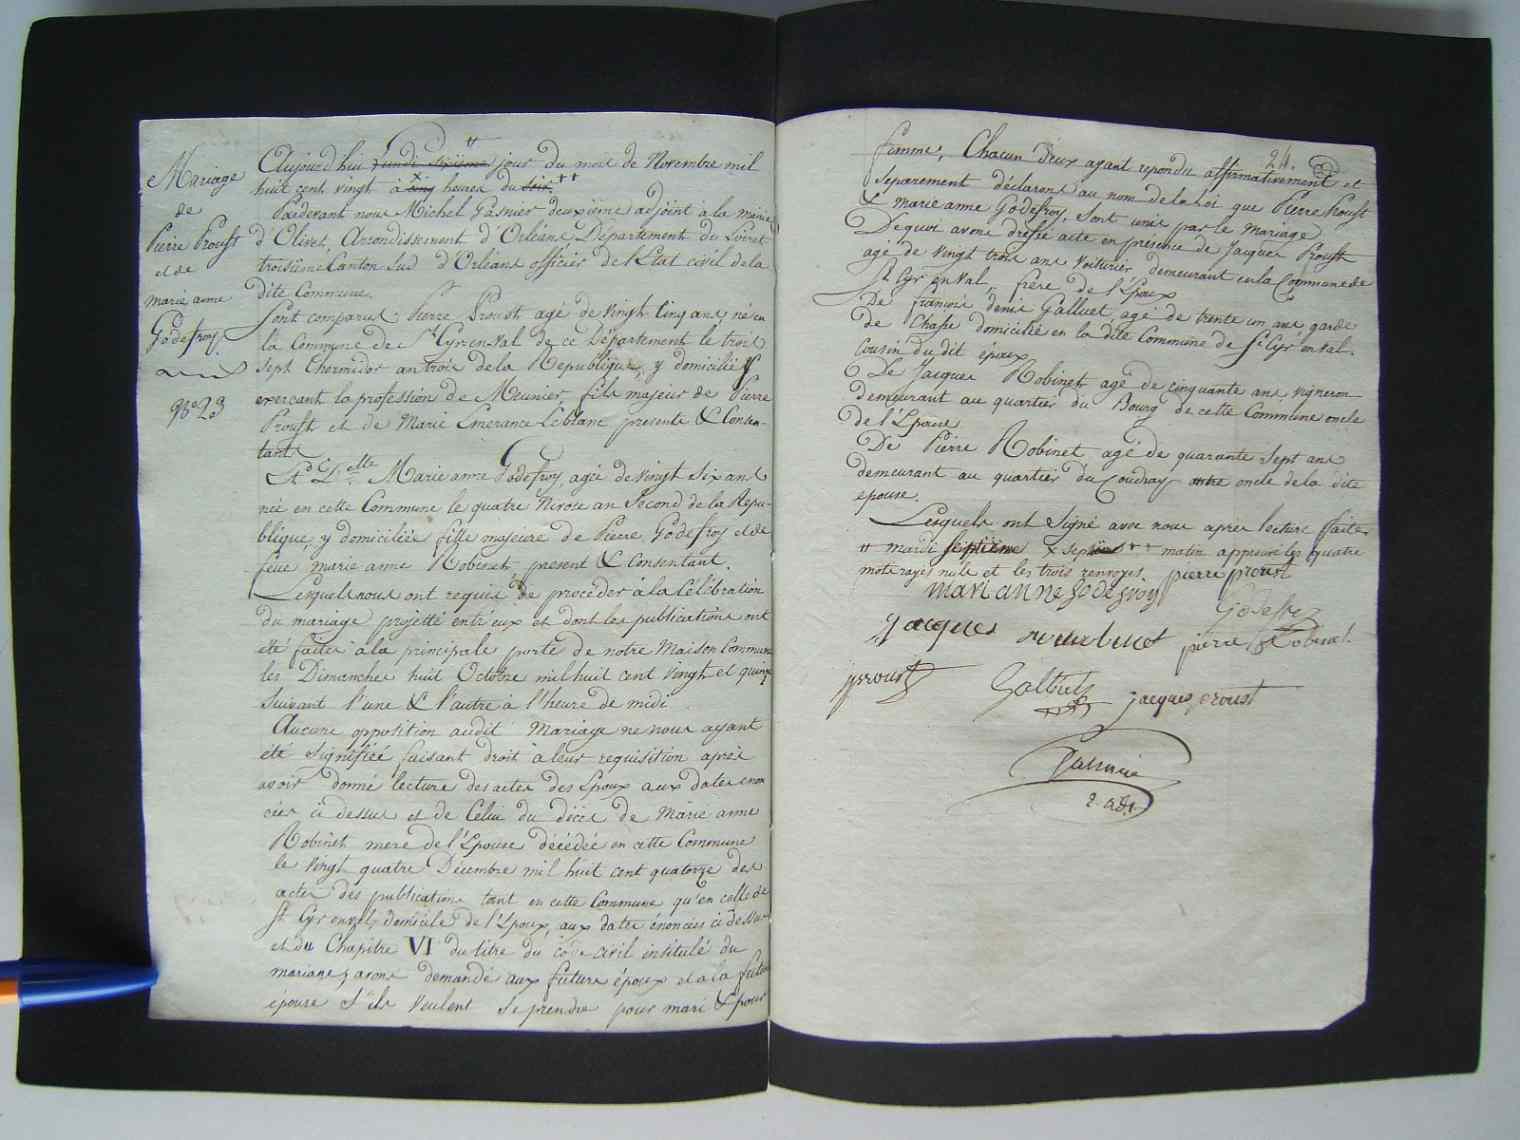 Mariage
de
Pierre Proust
et de
marie anne
Godefroy
No 23
Aujourd'hui lundi sixieme # jour du mois de Novembre mil
huit cent vingt à cinq × heures du soir ++
Pardevant nous Michel Gasnier deuxième adjoint à la mairie
d'Olivet, Arrondissement d'Orléans Département du Loiret
troisième Canton Sud d'Orléans officier de l'Etat civil de la
dite Commune.
Sont comparus : Pierre Proust agé de vingt cinq ans, né en
la Commune de St Cyr en Val de ce Département le trois
sept thermidor an trois de la République, y domicilié &
exercant la profession de Meunier, fils majeur de Pierre
Proust et de Marie Emerance Leblanc presents & Consen-
tants
Et Delle Marie anne Godefroy, agé de vingt six ans
née en cette Commune le quatre Nivose an Second de la Répu-
blique, y domiciliée fille majeure de Pierre Godefroy et de
feue marie anne Robinet, present & Consentant.
Lesquels nous ont requis de procéder à la Célébration
du mariage projetté entr'eux et dont les publications ont
été faites à la principale porte de notre Maison Commune
les Dimanches huit Octobre mil huit cent vingt et quinze
suivant l'une & l'autre à l'heure de midi.
Aucune opposition audit Mariage ne nous ayant
été Signifiée faisant droit à leur requisition après
avoir donné lecture des actes des Epoux aux dates enon
cées ci dessus et de Celui du décès de Marie anne
Robinet mere de l'Epouse décédée en cette Commune
le vingt quatre Décembre mil huit cent quatorze des
actes des publications tant en cette Commune qu'en celle de
St Cyr en val, domicile de l'Epoux, aux dates énoncées ci dessus
et du Chapitre VI du titre du code civil intitulé du
mariage, avons demandé aux futurs époux et à la future
épouse s'ils veulent se prendre pour mari & pour
24.
femme, Chacun d'eux ayant repondu affirmativement et
Separement déclarons au nom de la loi que Pierre Proust
& marie anne Godefroy, sont unis par le Mariage
De quoi avons dressé acte en présence de Jacques Proust
agé de vingt trois ans voiturier demeurant en la Commune de
St Cyr en Val, frère de l'Epoux
De francois denis Galluet, agé de trente un ans garde
de Chasse domicilié en la dite Commune de St Cyr en Val.
Cousin du dit époux
De Jacques Robinet, agé de cinquante ans, vigneron
demeurant au quartier du Bourg de cette Commune oncle
de l'Epouse
De Pierre Robinet, agé de quarante sept ans
demeurant au quartier du Coudray oncle de la dite
épouse.
Lesquels ont Signé avec nous après lecture faite
# mardi septième × sept ++ matin approuvé les quatre
mots rayés nuls et les trois renvoyes. pierre proust
mari anne Godefroy
Godefroy
jacques pierre Robinet
proust Galluet jacques proust
Gasnier
2. adj.